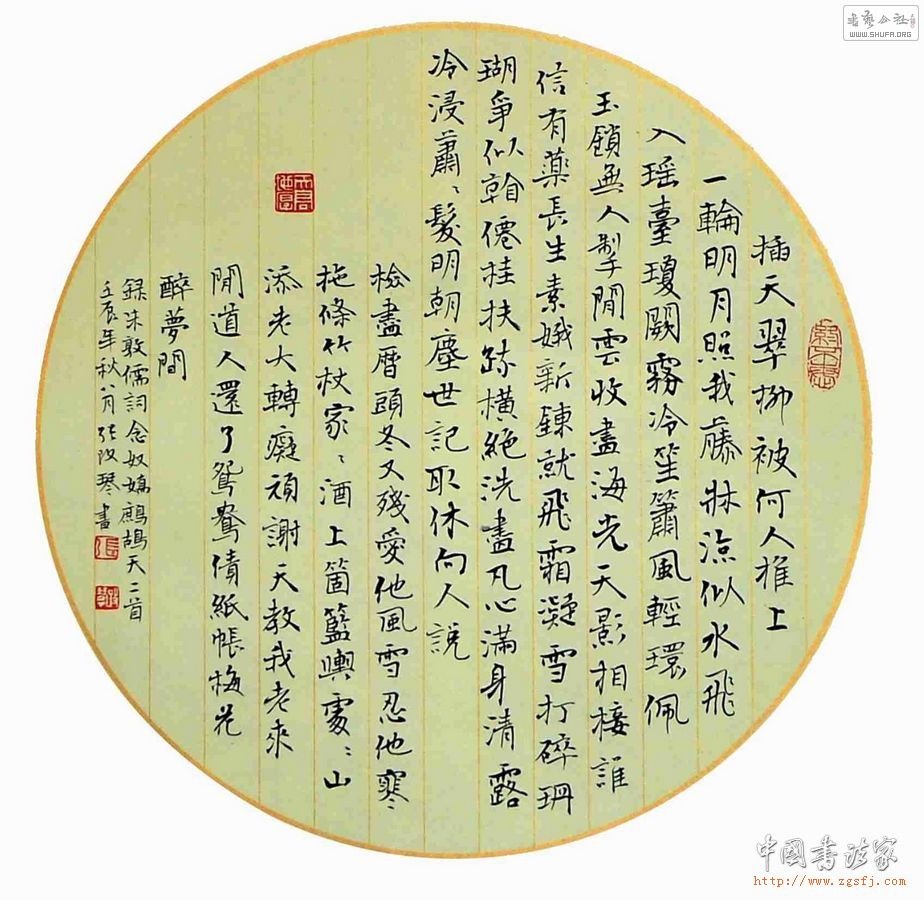 插天翠柳被何人推上
一輪明月照我藤牀涼似水飛
入瑶臺瓊闕霧冷笙簫風輕環佩
玉鎖無人掣閒雲收盡海光天影相接誰
信有藥長生素娥新鍊就飛霜凝雪打碎珊
瑚爭似看僊桂扶疎橫絕洗盡凡心滿身清露
冷浸蕭〻髮明朝塵世記取休向人說
檢盡曆頭冬又殘愛他風雪忍他寒
拖條竹杖家〻酒上箇籃輿處〻山
添老大轉癡頑謝天教我老來
閒道人還了鴛鴦債紙帳梅花
醉夢間
録朱敦儒詞念奴嬌鷓鴣天二首
壬辰年秋八月張改琴書
書藝公社
WWW.SHUFA.ORG
中國書法家
http://www.zgsfj.com